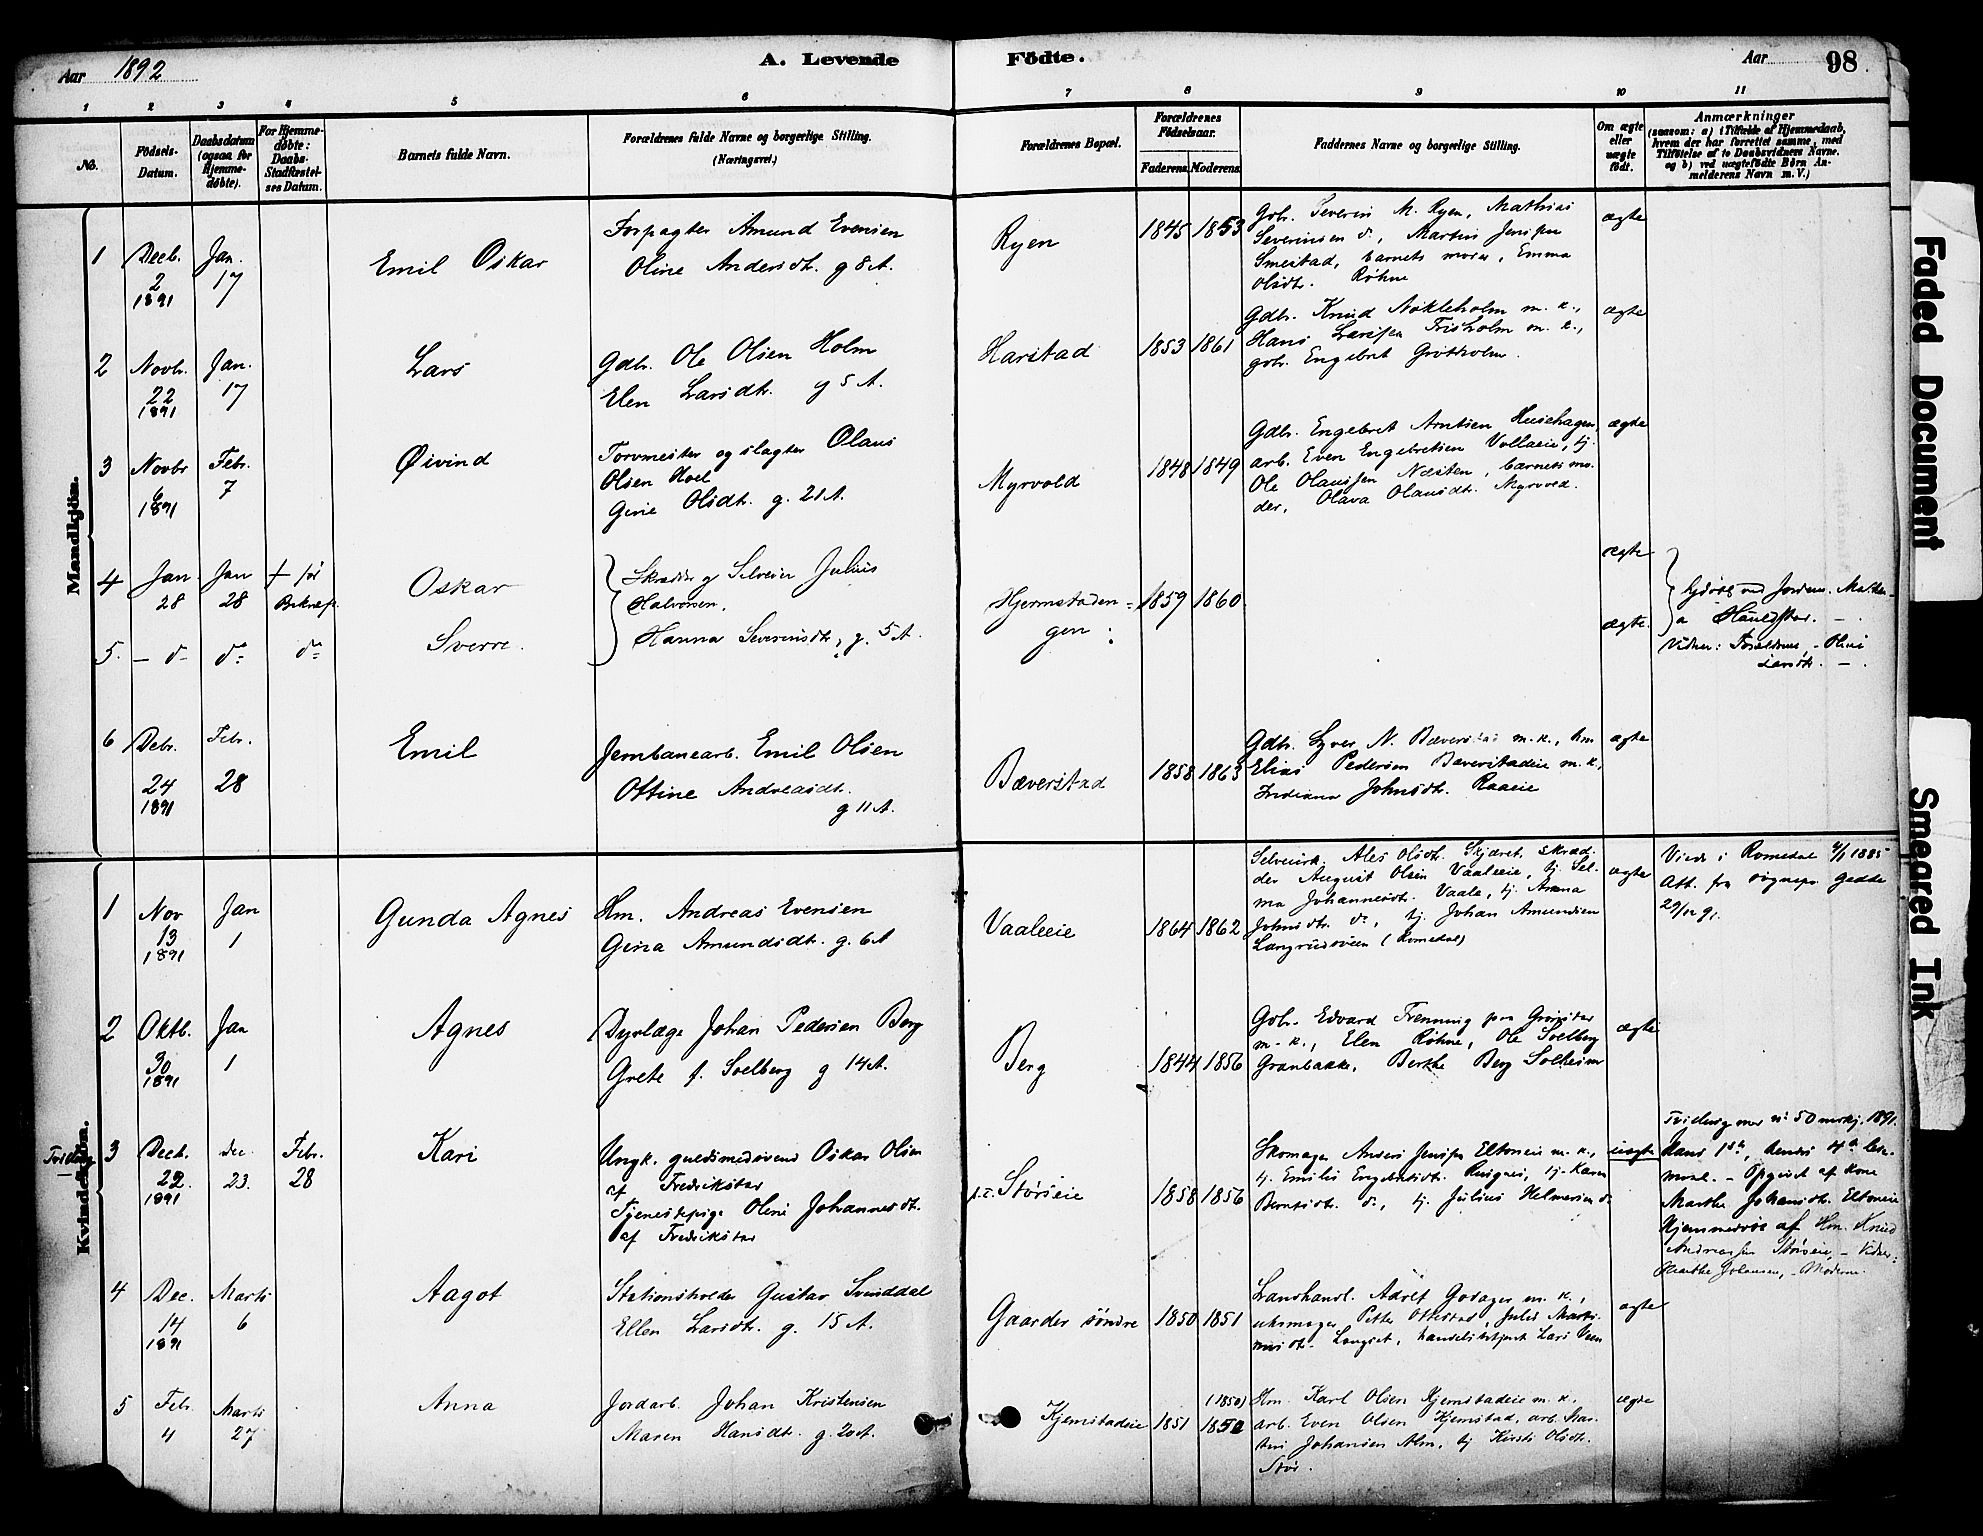 Aar 1892
A. Levende Födte.
Aar 98
1 2 3 4 5 6 7 8 9 10 11
No.
Födsels-Datum.
Daabsdatum (ogsaa for Hjemmedøbte).
For Hjemmedøbte: Daabs-Stadfæstelses Datum.
Barnets fulde Navn.
Forældrenes fulde Navne og borgerlige Stilling. (Næringsvei.)
Forældrenes Bopæl.
Forældrenes Födselsaar.
Faderens. Moderens.
Faddernes Navne og borgerlige Stilling.
Om ægte eller uægte födt.
Anmærkninger
(saasom: a) i Tilfælde af Hjemmedaab, hvem der har forrettet samme, med Tilföielse af to Daabsvidners Navne. og b) ved uægtefödte Börn Anmelderens Navn m. V.)
Mandkjön.
1 Decb. 2 1891 Jan. 17 Emil Oskar
Forpagter Amund Evensen
Oline Andersdt. g 8 A.
Ryen 1845 1853
Gbr. Severin M. Ryen, Mathias
Severinsen do, Martin Jensen
Smestad, barnets moder, Emma
Olsdtr. Røhne
ægte
2 Novbr. 22 1891 Jan. 17 Lars
Gdbr. Ole Olsen Holm
Elen Larsdtr. g 5 A.
Harstad 1853 1861
Gdbr. Knud Nökleholm m. k.,
Hans Larsen Frisholm m. k.,
gbr. Engebret Grøtholm.
ægte
3 Novbr 6 1891 Febr. 7 Øivind
Torvmester og slagter Olaus
Olsen Hoel
Gine Olsdt. g. 21 A.
Myrvold 1848 1849
Gdbr. Engebret Arntsen Husehagen,
arb. Even Engebretsen Vollaeie, tj.
Ole Olaussen Næsten, barnets mo-
der, Olava Olausdt. Myrvold.
ægte
4 Jan 28 Jan 28 † før Bekræft. Oskar
Skrædder og Selveier Julius
Halvorsen,
Hanna Severinsdtr, g. 5 A.
Hjemstaden=
gen: 1859 1860
ægte
5. – do – do do Sverre.
ægte.
Hjdøbt ved Jordem. Mathea
Vidner: Forældrene, – Oline
Larsdtr. –
6 Debr. 24 1891 Febr. 28 Emil
Jernbanearb. Emil Olsen
Ottine Andreasdt.
g 11 A.
Bæverstad 1858 1863
Gdbr. Syver N. Bæverstad m. k., hm
Elias Pedersen Bæverstadeie m. k.,
Indiana Johnsdtr. Raaeie
ægte
Kvindekjön.
1 Nov 13 1891 Jan 1 Gunda Agnes
Hm. Andreas Evensen
Gina Amundsdtr. g. 6 A
Vaaleeie 1864 1862
Selveierk. Ales Olsdtr. Skjæret, skræd-
der August Olsen Vaaleeie, tj. Sel-
ma Johannesdt. Vaale, tj. Anna
Johnsdtr. do, tj. Johan Amundsen
Langrudsveen (Romedal)
ægte
Viede i Romedal 4/1 1885
Att. fra sognepr. Gedde
29/12 91.
2 Oktb. 30 1891 Jan 1 Agnes
Dyrlæge Johan Pedersen Berg
Grete f. Solberg g 14 A.
Berg 1844 1856
Gbr. Edvard Frenning fra Grønstad
m. k., Elen Røhne, Ole Solberg
Granbakke, Berthe Berg Solheim
ægte
Tvilling
3 Decb. 22. 1891 Dec. 23. Febr. 28 Kari
Ungk. guldsmedsvend Oskar Olsen
af Fredrikstad
Tjenestepige Oline Johannesdt.
af Fredrikstad
p.t. Størseie 1858 1856
Skomager Anders Jensen Eltoneie m. k.,
tj. Emilie Engebretsdtr. Ringnes, tj. Karen
Berntsdtr. do, tj. Julius Helmersen do
uægte
Tvilling med No 50 mandkj. 1891.
Hans 1ste, hendes 4de leier-
maal. – Opgivet af kone
Marthe Johansdt. Eltoneie
Hjemmedøbt af Hm. Knud
Andreassen Størseie, – Vidner:
Marthe Johansen, – Moderen.
4 Dec. 14 1891 Marts 6 Aagot
Stationsholder Gustav Svinddal
Ellen Larsdtr. g. 15 A.
Gaarder søndre 1850 1851
Landhandl. Adolf Godager m. k.,
urmager Petter Ottestad, Julie Marti-
nusdtr. Langset, handelsbetjent Lars Veen
ægte
5 Febr. 4 Marts 27 Anna
Jordarb. Johan Kristensen
Maren Hansdtr. g. 20 A.
Kjemstadeie 1851 (1850) 1852
Hm. Karl Olsen Kjemstadeie m. k.
arb. Even Olsen Kjemstad, arb. Mar-
tin Johansen Alm, tj. Kirsti Olsdtr.
Stor.
ægte
Faded Document
Smeared Ink